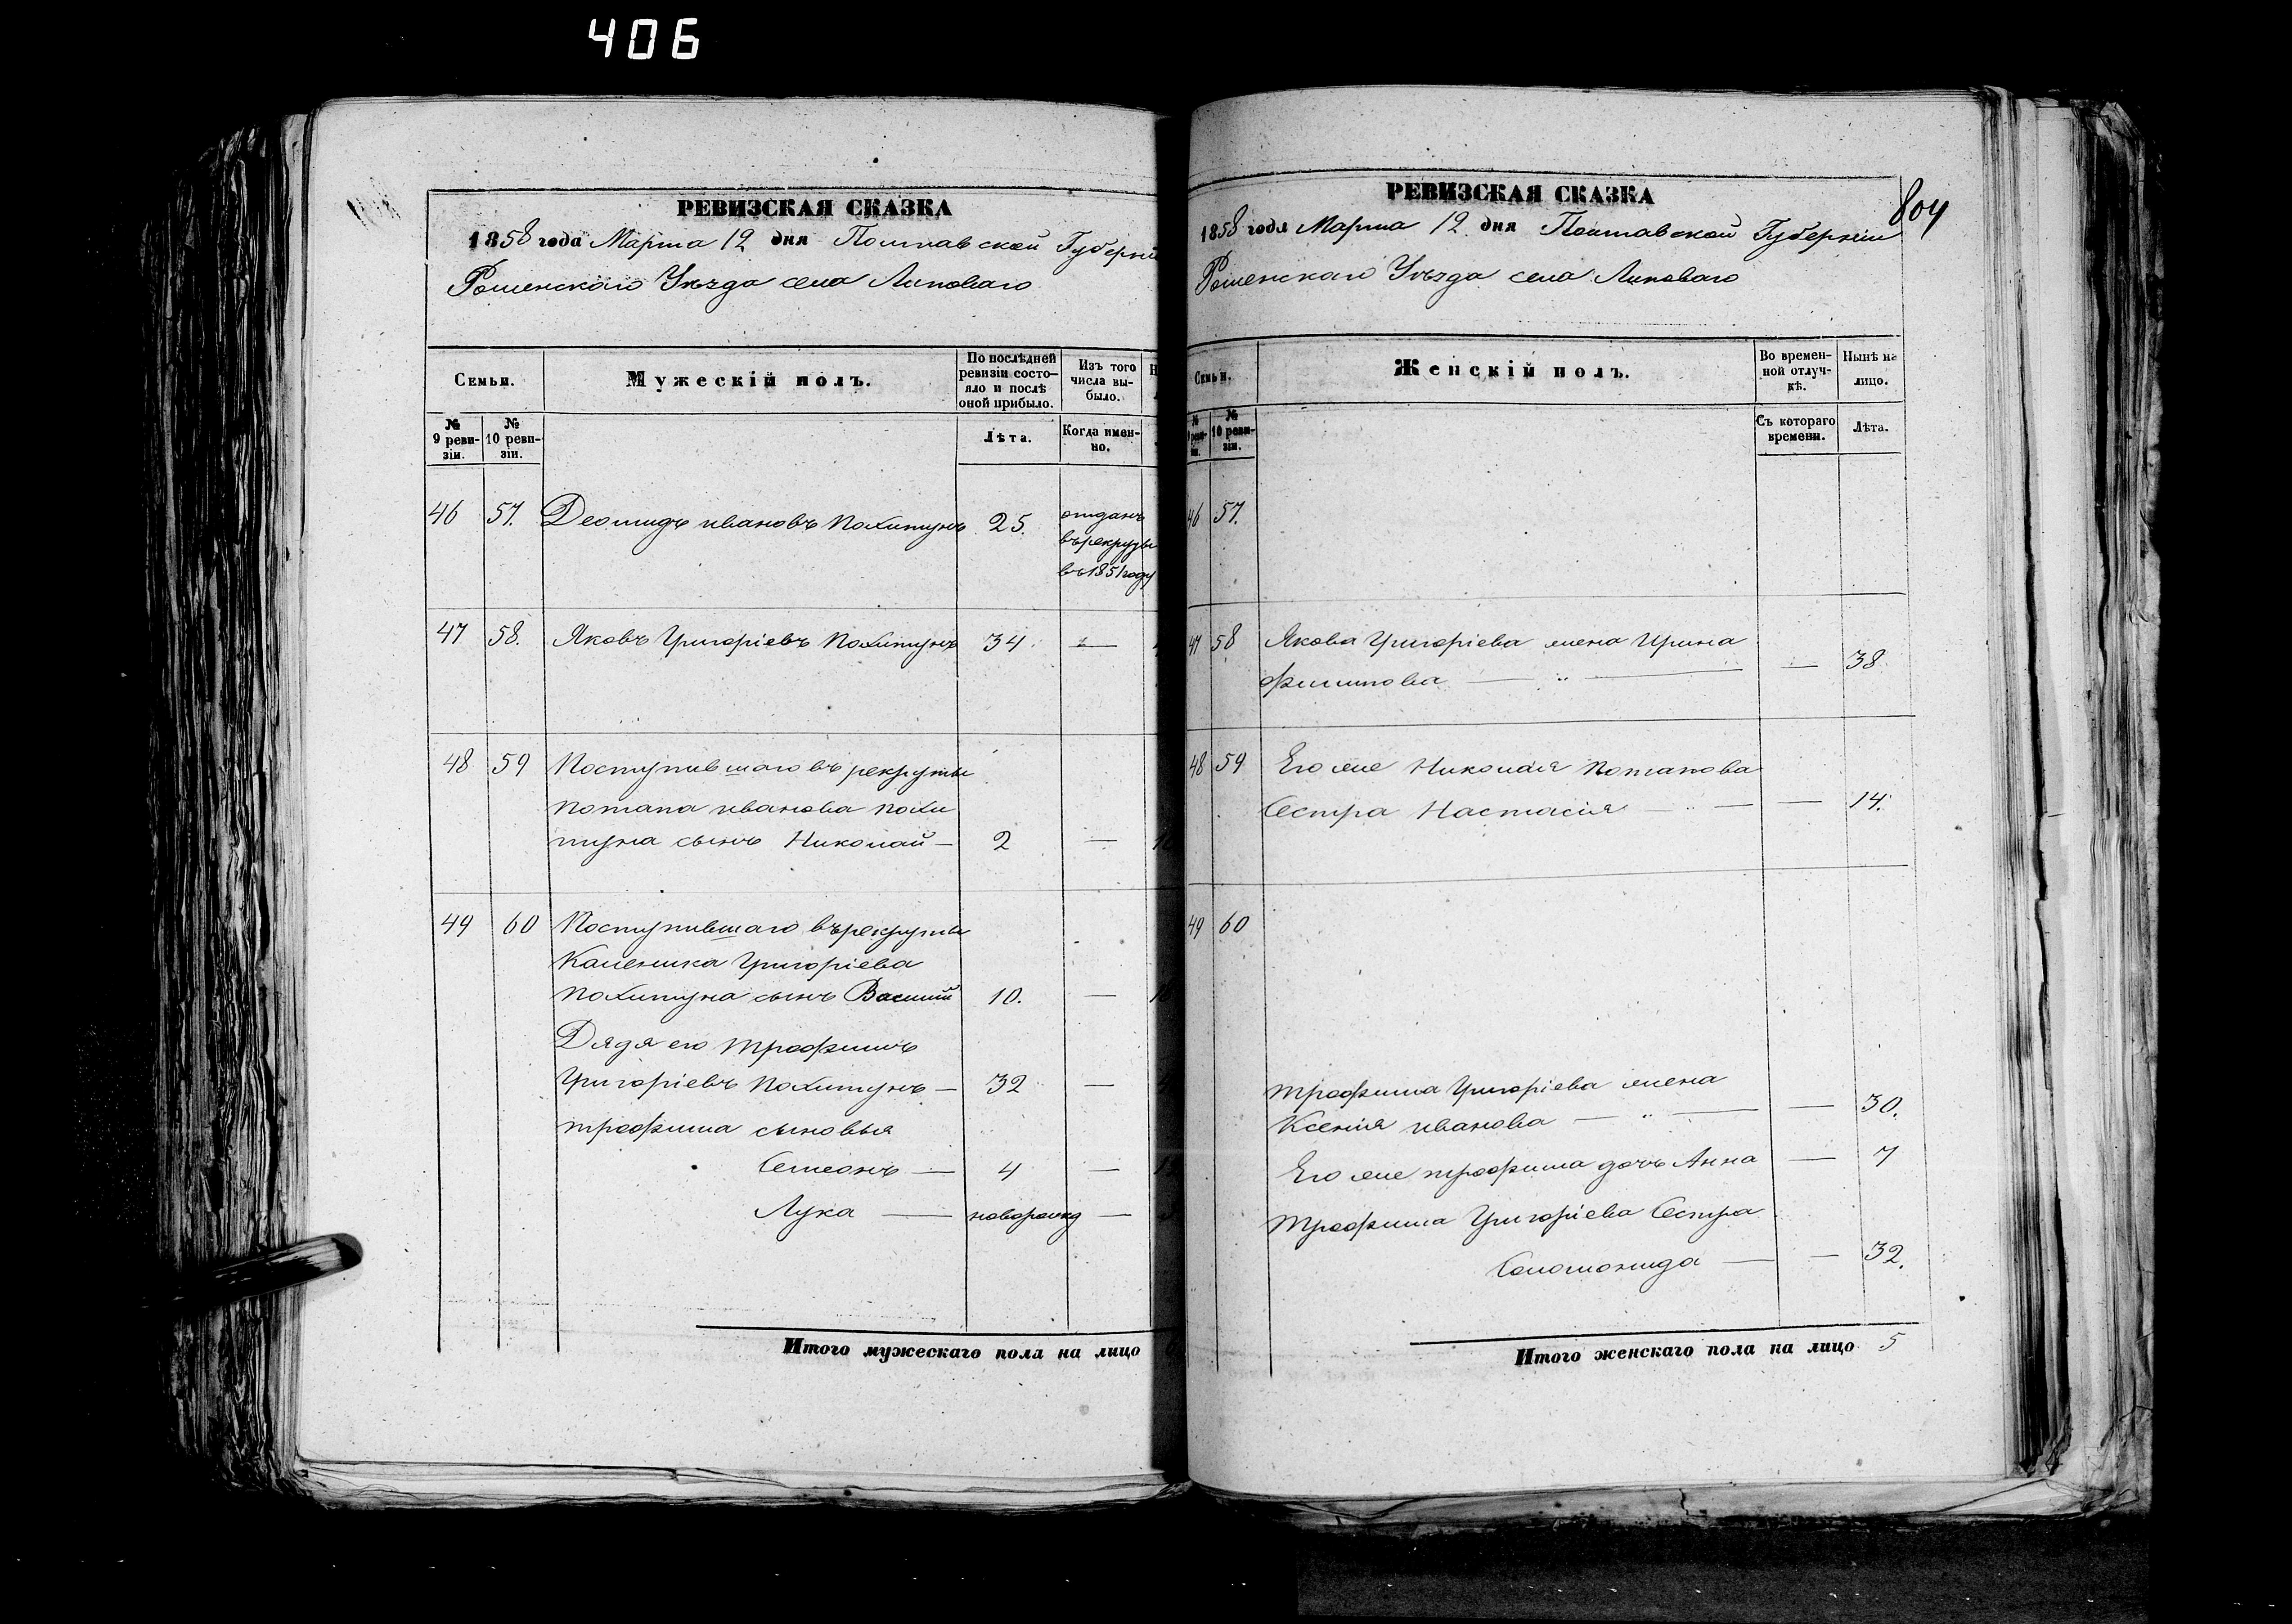 406
РЕВИЗСКАЯ СКАЗКА
1858 года Марта 12 дня Полтавской Губерніи
Роменскаго Уѣзда села Липоваго
Семьи.
Мужескій полъ.
По послѣдней ревизіи состояло и послѣ оной прибыло.
Изъ того числа выбыло.
№ 9 ревизіи.
№ 10 ревизіи.
Лѣта.
Когда именно.
46 57. Деомидъ ивановъ Похитунъ 25. отданъ
въ рекруты
въ 1851 году
47 58. Яковъ Григоріевъ Похитунъ 34 —
48 59 Поступившаго въ рекруты
потапа иванова похи
туна сынъ Николай — 2 —
49 60 Поступившаго въ рекруты
Каленика Григоріева
похитуна сынъ Василій 10. —
Дядя его трофимъ
Григоріевъ Похитунъ — 32 —
трофима сыновья
Семеонъ — 4 —
Лука — новорожд —
Итого мужескаго пола на лицо
804
РЕВИЗСКАЯ СКАЗКА
1858 года Марта 12 дня Полтавской Губерніи
Роменскаго Уѣзда села Липоваго
Семьи.
Женскій полъ.
Во временной отлучкѣ.
Нынѣ на лицо.
№ 9 ревизіи.
№ 10 ревизіи.
Съ котораго времени.
Лѣта.
46 57.
47 58 Якова Григоріева жена Ирина
филипова — „ — — 38
48 59 Его же Николая потапова
Сестра Настасія — „ — — 14.
49 60
трофима Григоріева жена
Ксенія иванова — „ — — 30.
Его же трофима дочь Анна — 7
трофима Григоріева Сестра
Соломонида — — 32.
Итого женскаго пола на лицо 5